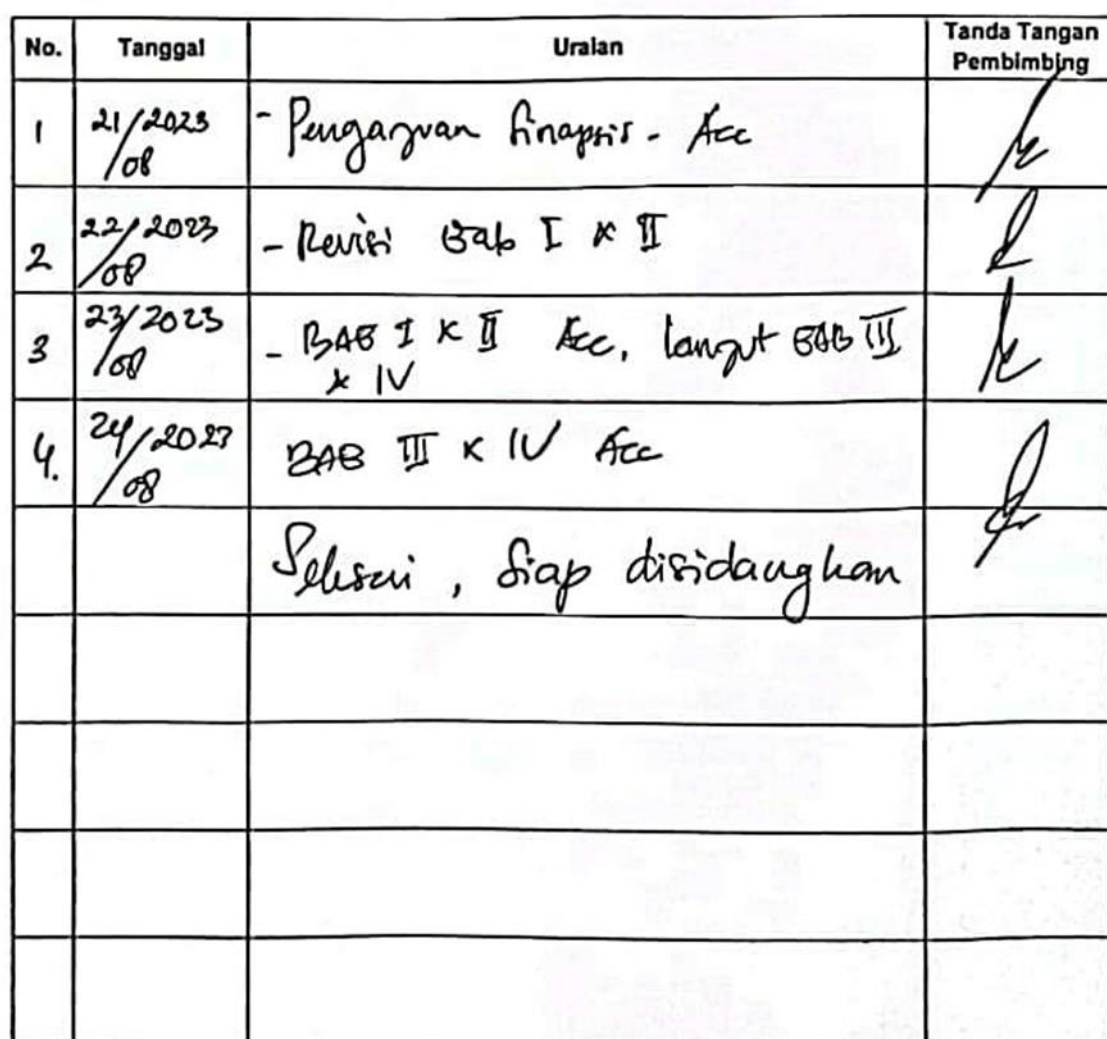 No. Tanggal Uraian Tanda Tangan Pembimbing
1 21/08/2023 - Pengajuan Sinapsis - Acc
2 22/08/2023 - Revisi Bab I & II
3 23/08/2023 - BAB I & II Acc, lanjut BAB III
& IV
4. 24/08/2023 BAB III & IV Acc
Selesai, Siap disidangkan